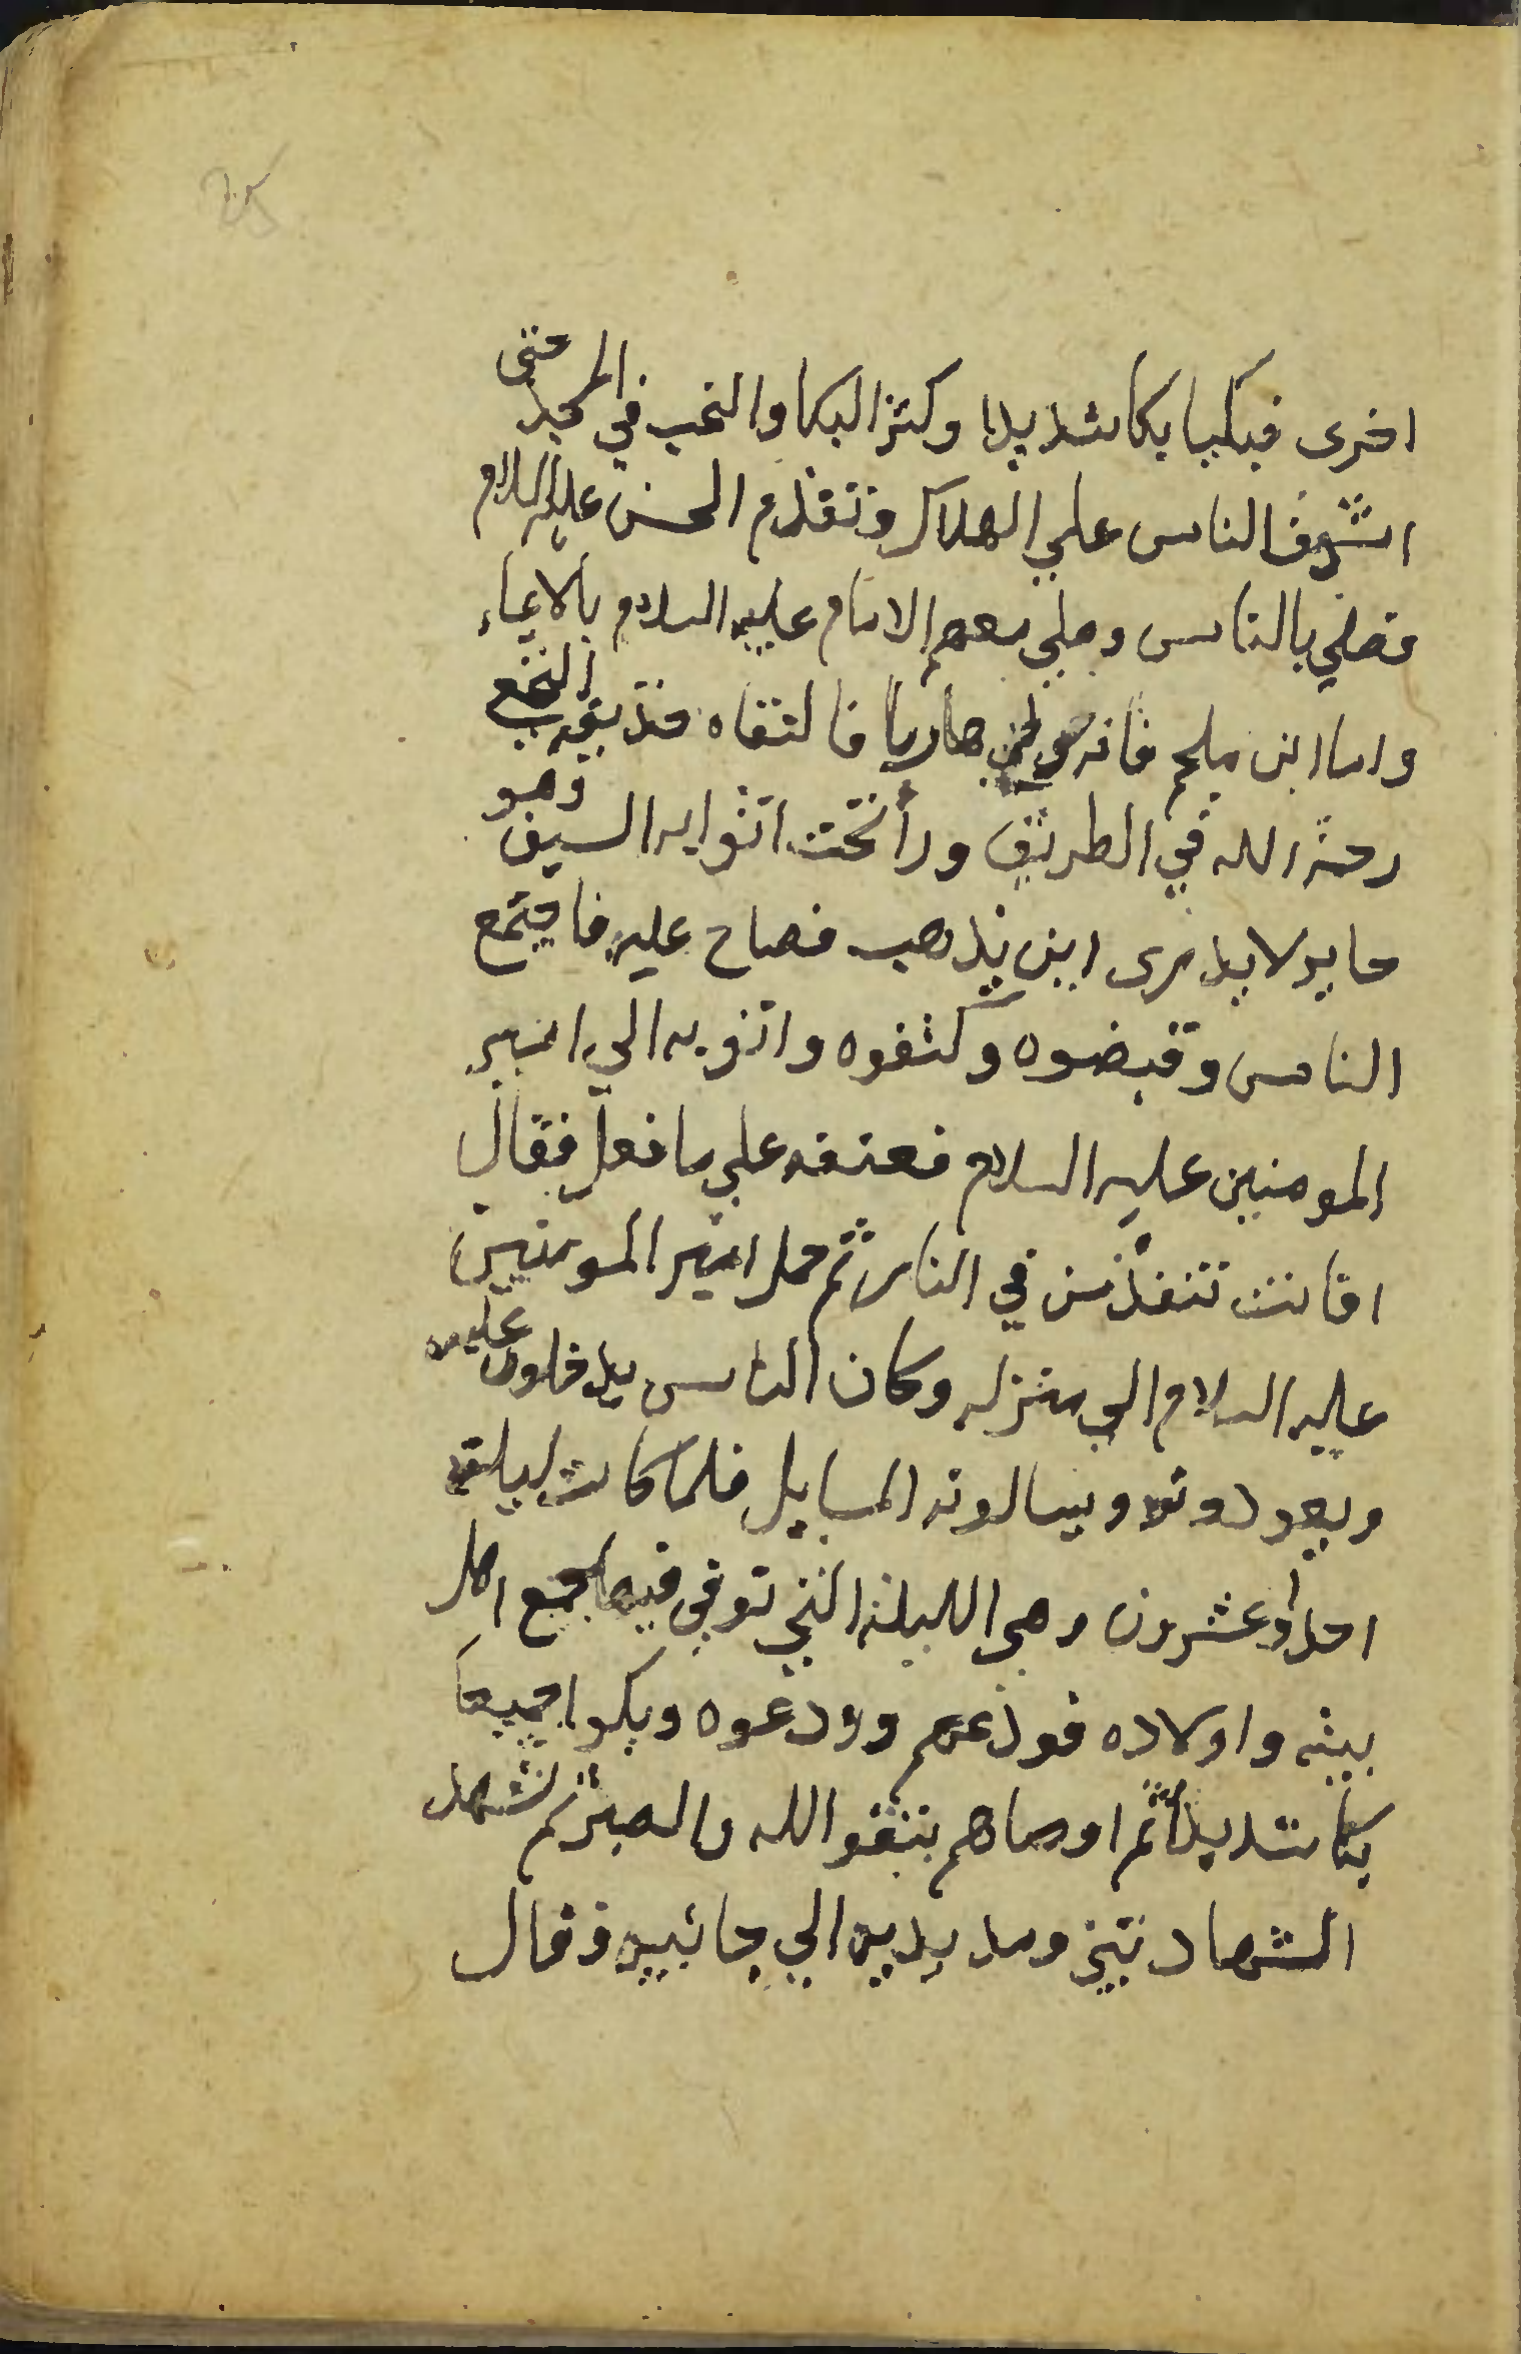 25
اخرى فبكيا بكا شديدا وكثر البكا والنحب في المسجد حتى
اشرف الناس علي الهلاك وتقدم الحسن عليه السلام
فصلي بالناس وصلي معهم الامام عليه السلام بالايماء
واما ابن ملجم فانه هاربا فالتقاه النخع
رحمة الله في الطريق ورأ تحت اثوابه السيف وهو
حاير لا يدري اين يذهب فصاح عليه فاجتمع
الناس وقبضوه وكتفوه واتو به الي امير
المومنين عليه السلام فعنفه علي ما فعل فقال
افانت تنقذ من في النار ثم حمل امير المومنين
عليه السلام الي منزله وكان الناس يدخلون عليه
ويعودونه ويسالونه المسايل فلما كانت ليلة
احدا وعشرون وهي الليلة التي توفي فيها جمع اهل
بيته واولاده فودعهم وودعوه وبكوا جميعا
بكا شديدا ثم اوصاهم بتقوا الله والصبر ثم تشهد
الشهادتين ومد يديه الي جانبيه وقال